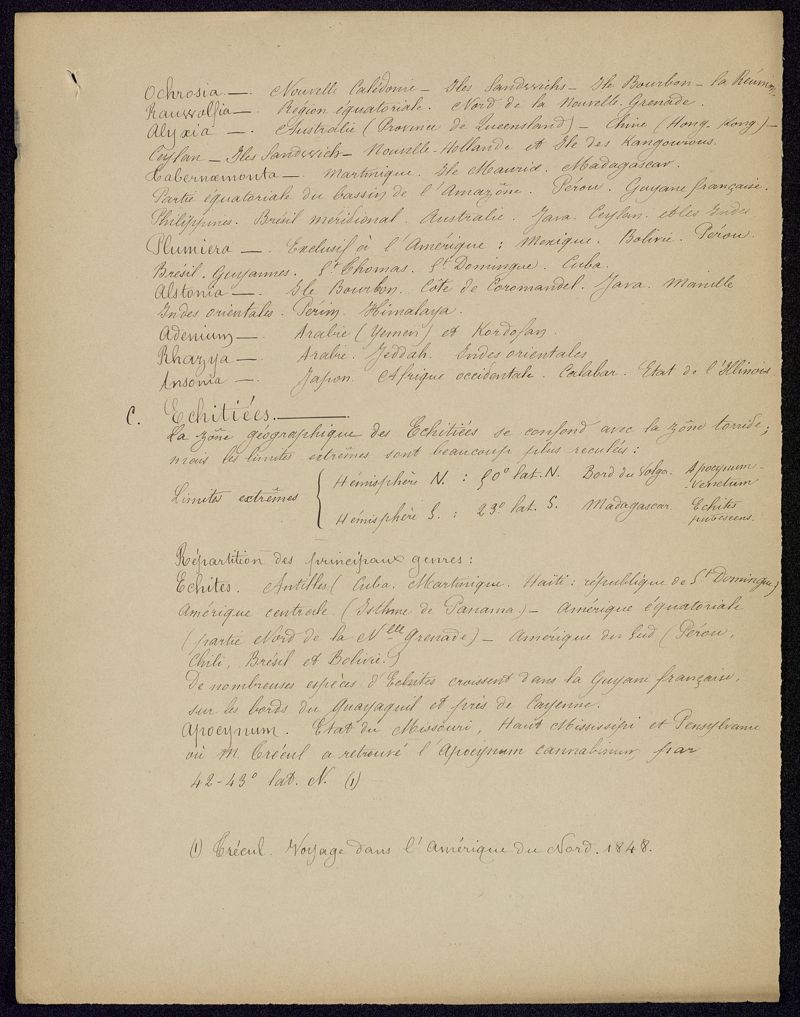 Ochrosia —. Nouvelle Calédonie — Iles Sandwichs — Ile Bourbon — la Réunion.
Rauwolfia —. Région équatoriale. Nord de la Nouvelle-Grenade.
Alyxia —. Australie (Province de Queensland) — Chine (Hong-Kong) —
Ceylan — Iles Sandwich — Nouvelle-Hollande et Ile des Kangourous.
Tabernæmonta —. Martinique. Ile Maurice. Madagascar.
Partie équatoriale du bassin de l'Amazône. Pérou. Guyane française.
Philippines. Brésil méridional. Australie. Java. Ceylan et les Indes
Plumiera —. Exclusif à l'Amérique : Mexique. Bolivie. Pérou.
Brésil. Guyannes. St Thomas. St Domingue. Cuba.
Alstonia —. Ile Bourbon. Côte de Coromandel. Java. Manille
Indes orientales. Périm. Himalaya.
Adenium —. Arabie (Yemen) et Kordofan.
Rhazya —. Arabie. Jeddah. Indes orientales
Ansonia —. Japon. Afrique occidentale. Calabar. Etat de l'Illinois
C. Echitiées. —
La zône géographique des Echitiées se confond avec la zône torride;
mais les limites extrêmes sont beaucoup plus reculées :
Limites extrêmes { Hémisphère N. : 50° lat. N. Bord du Volga. Apocynum venetum
Hémisphère S. : 23° lat. S. Madagascar. Echites pubescens.
Répartition des principaux genres :
Echites. Antilles (Cuba. Martinique. Haïti : république de St Domingue)
Amérique centrale (Isthme de Panama) — Amérique équatoriale
(partie Nord de la Nlle Grenade) — Amérique du Sud (Pérou,
Chili, Brésil et Bolivie.)
De nombreuses espèces d'Echites croissent dans la Guyane française,
sur les bords du Guayaquil et près de Cayenne.
Apocynum. Etat du Missouri, Haut Mississipi et Pensylvanie
où M. Trécul a retrouvé l'Apocynum cannabinum par
42-43° lat. N. (1)
(1) Trécul. Voyage dans l'Amérique du Nord. 1848.